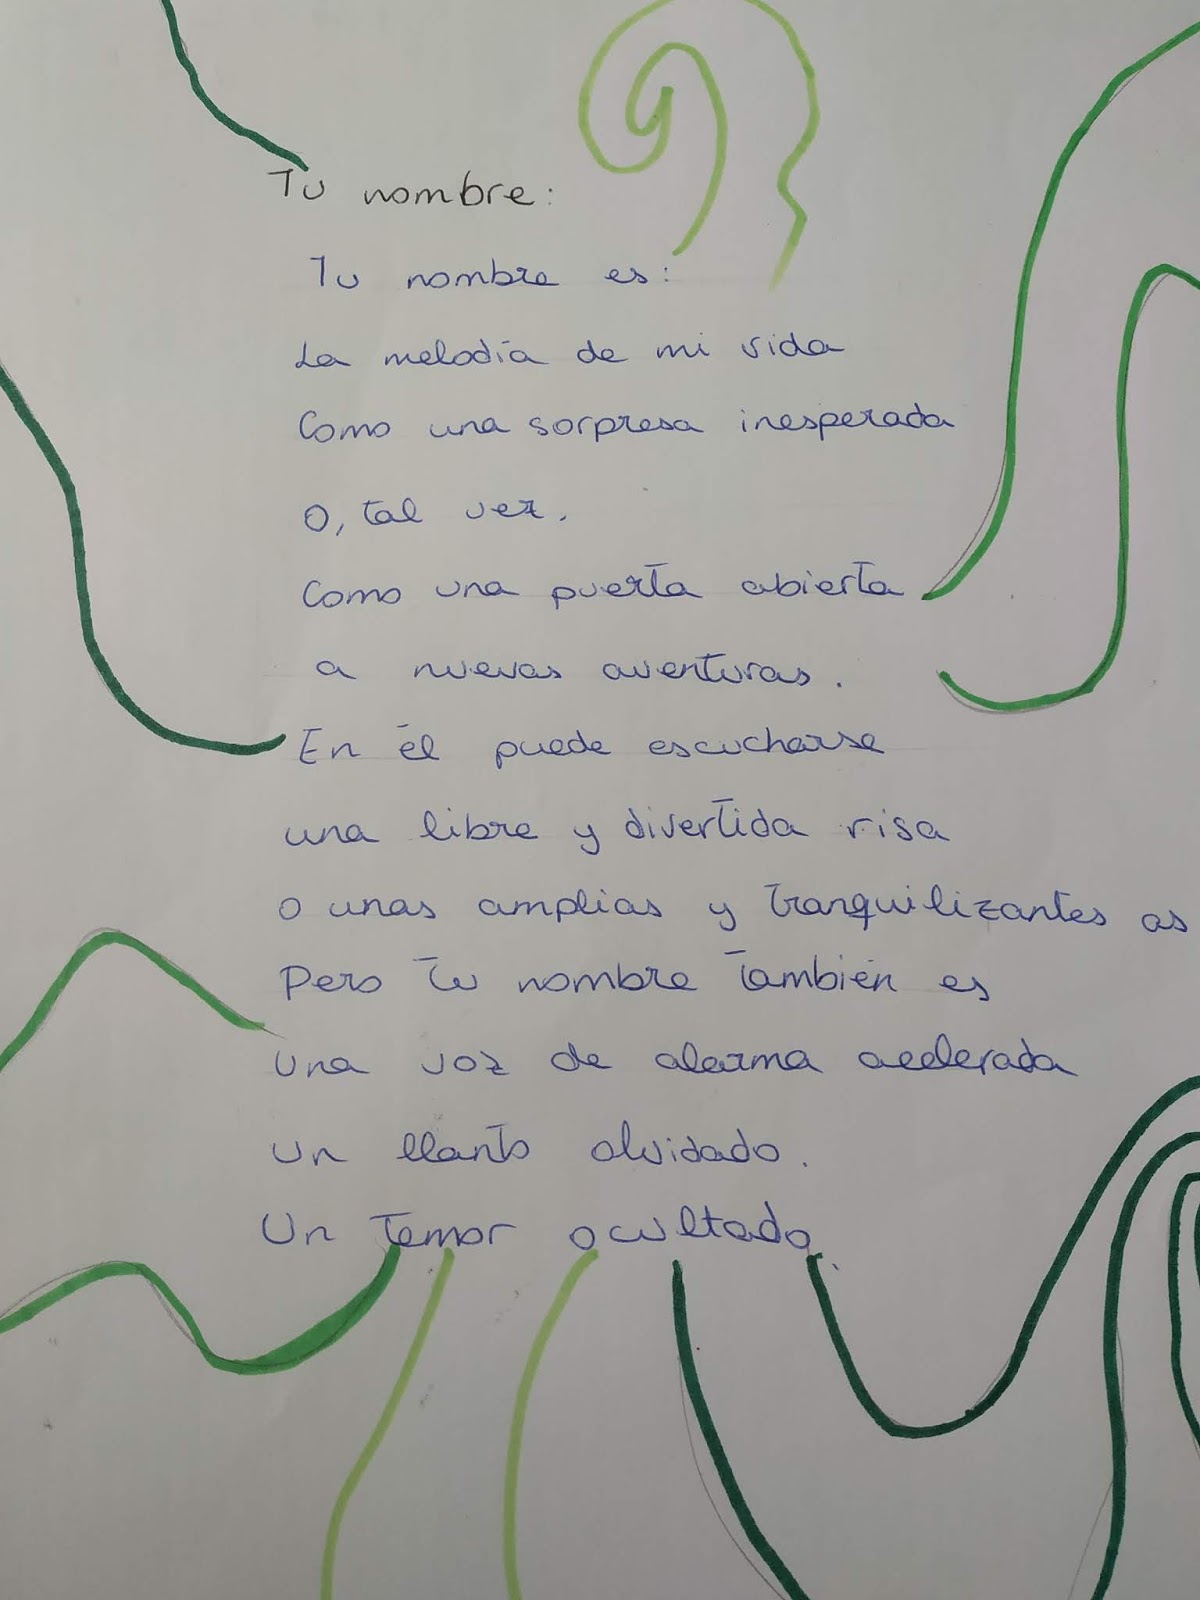 Tu nombre:
Tu nombre es:
La melodía de mi vida
Como una sorpresa inesperada
O, tal vez.
Como una puerta abierta
a nuevas aventuras.
En él puede escucharse
una libre y divertida risa
o unas amplias y tranquilizantes as
Pero tu nombre también es
una voz de alarma acelerada
un llanto olvidado.
Un temor ocultado.